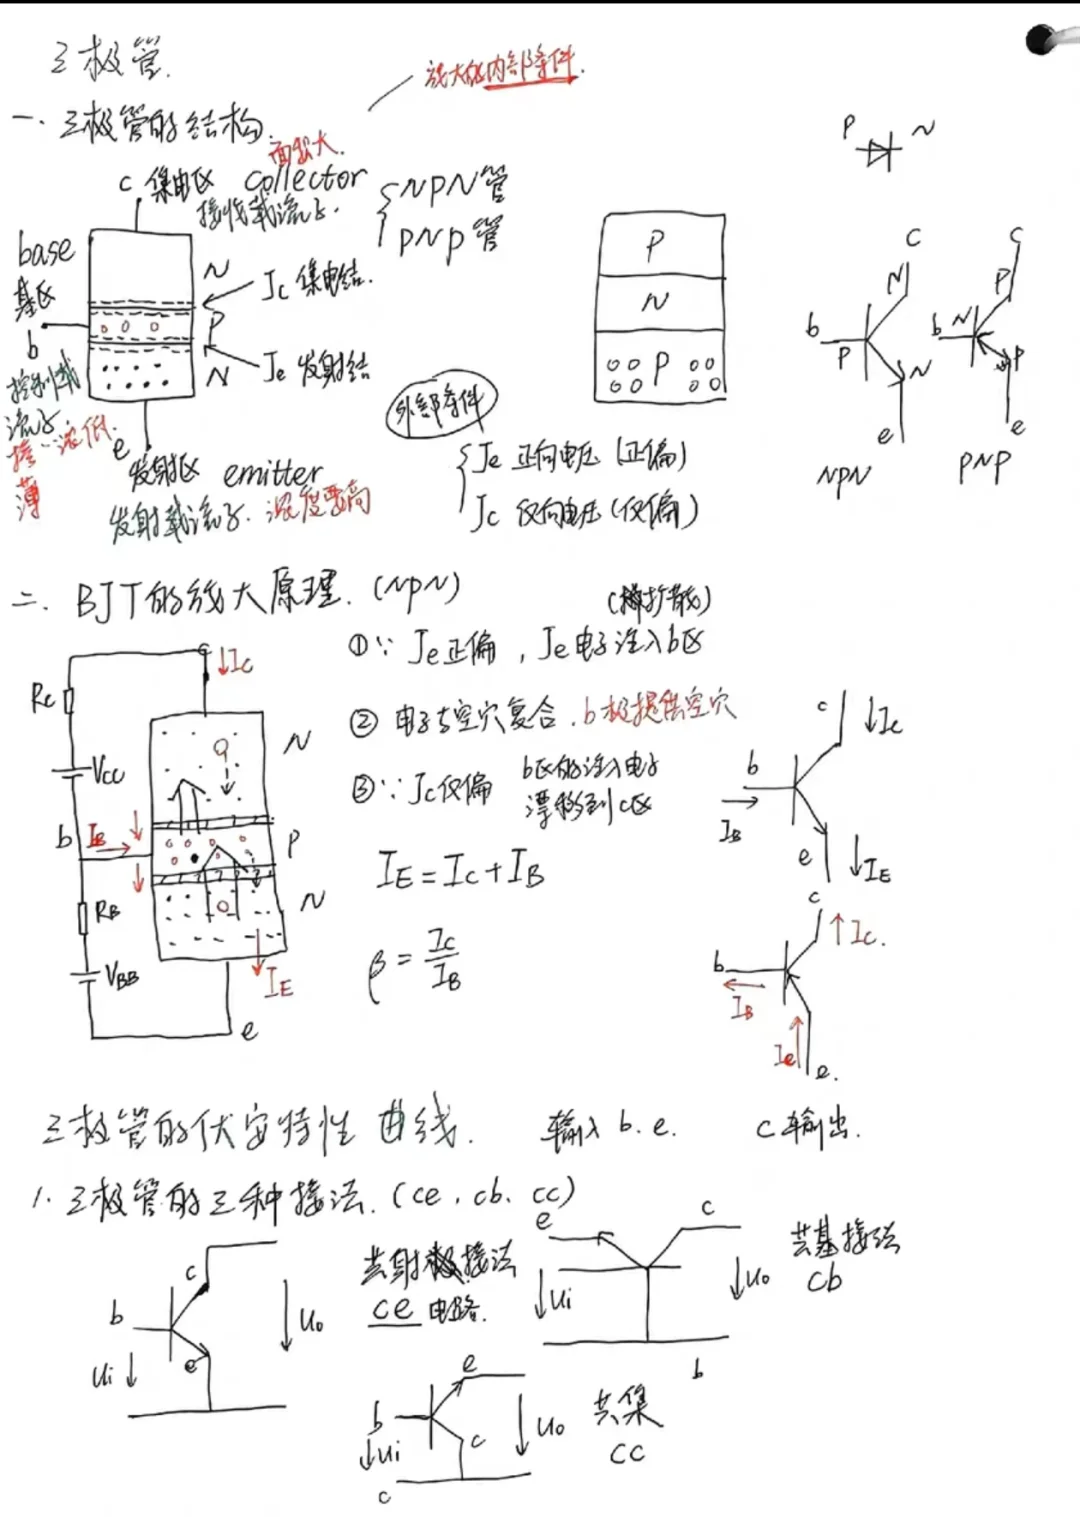 三极管.
放大的内部条件.
一. 三极管的结构.
面积大.
c 集电区 collector
接收载流子.
NPN管
PNP管
base
基区
b
控制载
流子.
掺杂浓低.
薄
N
P
N
Jc 集电结.
Je 发射结
e
发射区 emitter
发射载流子. 浓度要高
外部条件
Je 正向电压 (正偏)
Jc 反向电压 (反偏)
P
N
P
P N
c
N
b
P
N
e
NPN
c
P
b N
P
e
PNP
二. BJT的放大原理. (NPN)
(扩散)
① ∵ Je正偏, Je电子注入b区
② 电子与空穴复合. b极提供空穴
③ ∵ Jc反偏 b区的注入电子
漂移到c区
IE = Ic + IB
β = Ic/IB
c
Ic
Rc
Vcc
b IB
RB
VBB
N
P
N
IE
e
c Ic
b
IB
e IE
c
Ic.
b
IB
Ie
e.
三极管的伏安特性曲线. 输入 b.e. c输出.
1. 三极管的三种接法. (ce. cb. cc)
c
b
e
ui
uo
共射极接法
ce 电路.
e
c
ui
uo
b
共基接法
cb
e
b
c
ui
uo
c
共集
cc